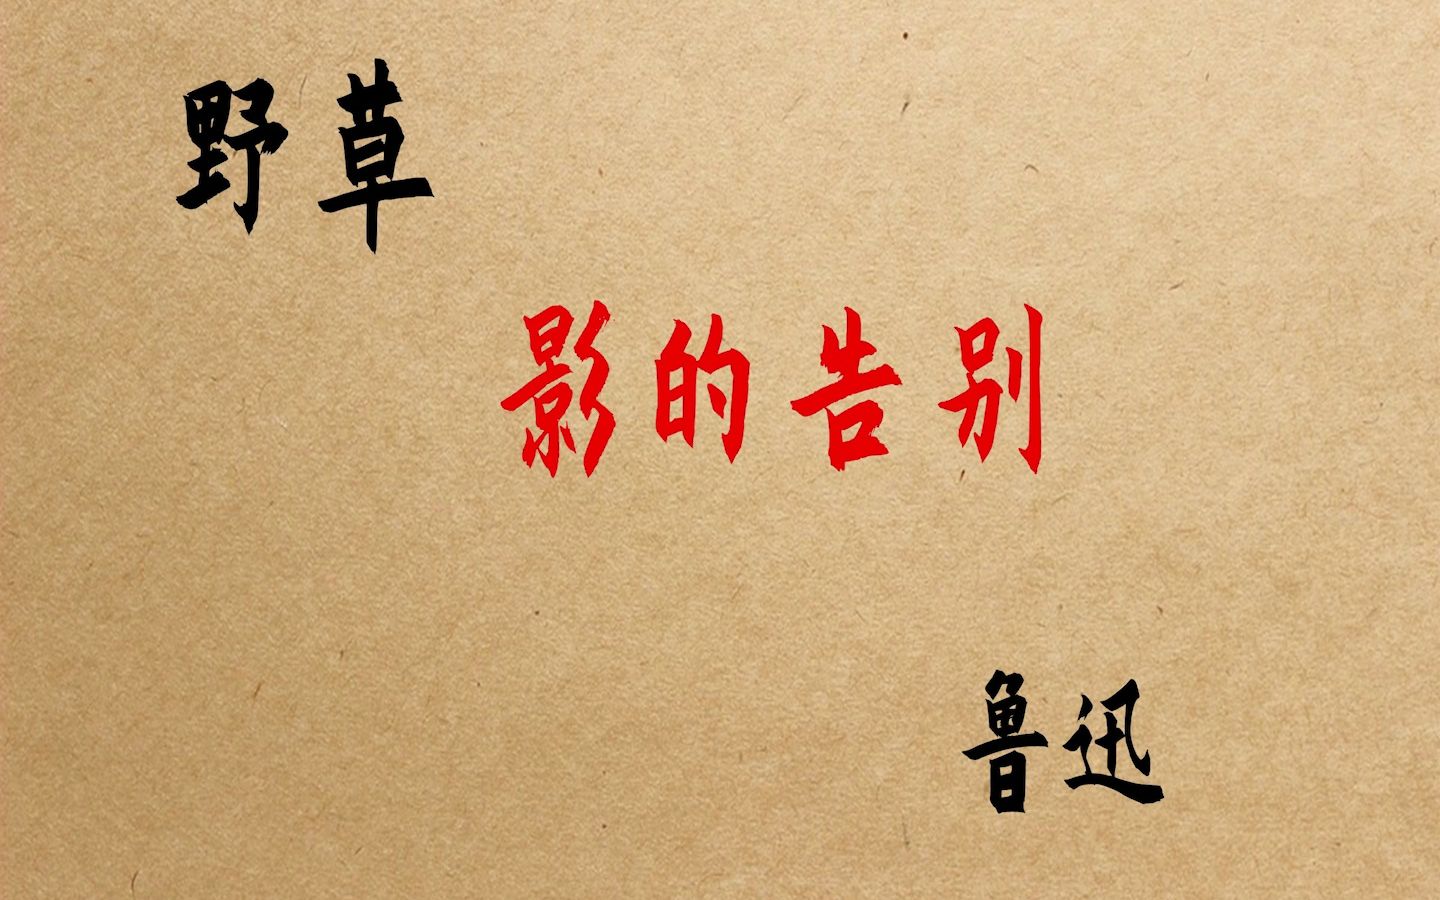 野草
影的告别
鲁迅